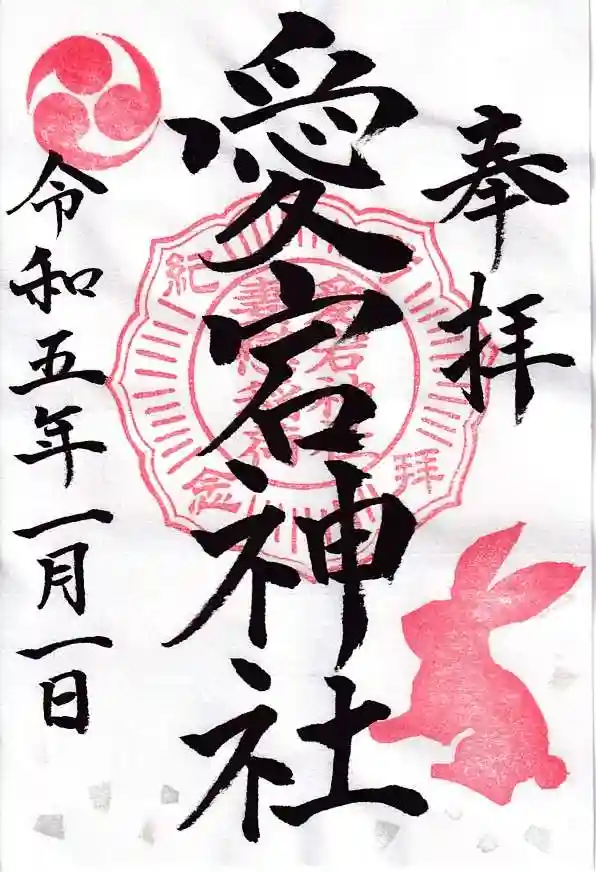 奉拝
愛宕神社
令和五年一月一日
拝
紀
念